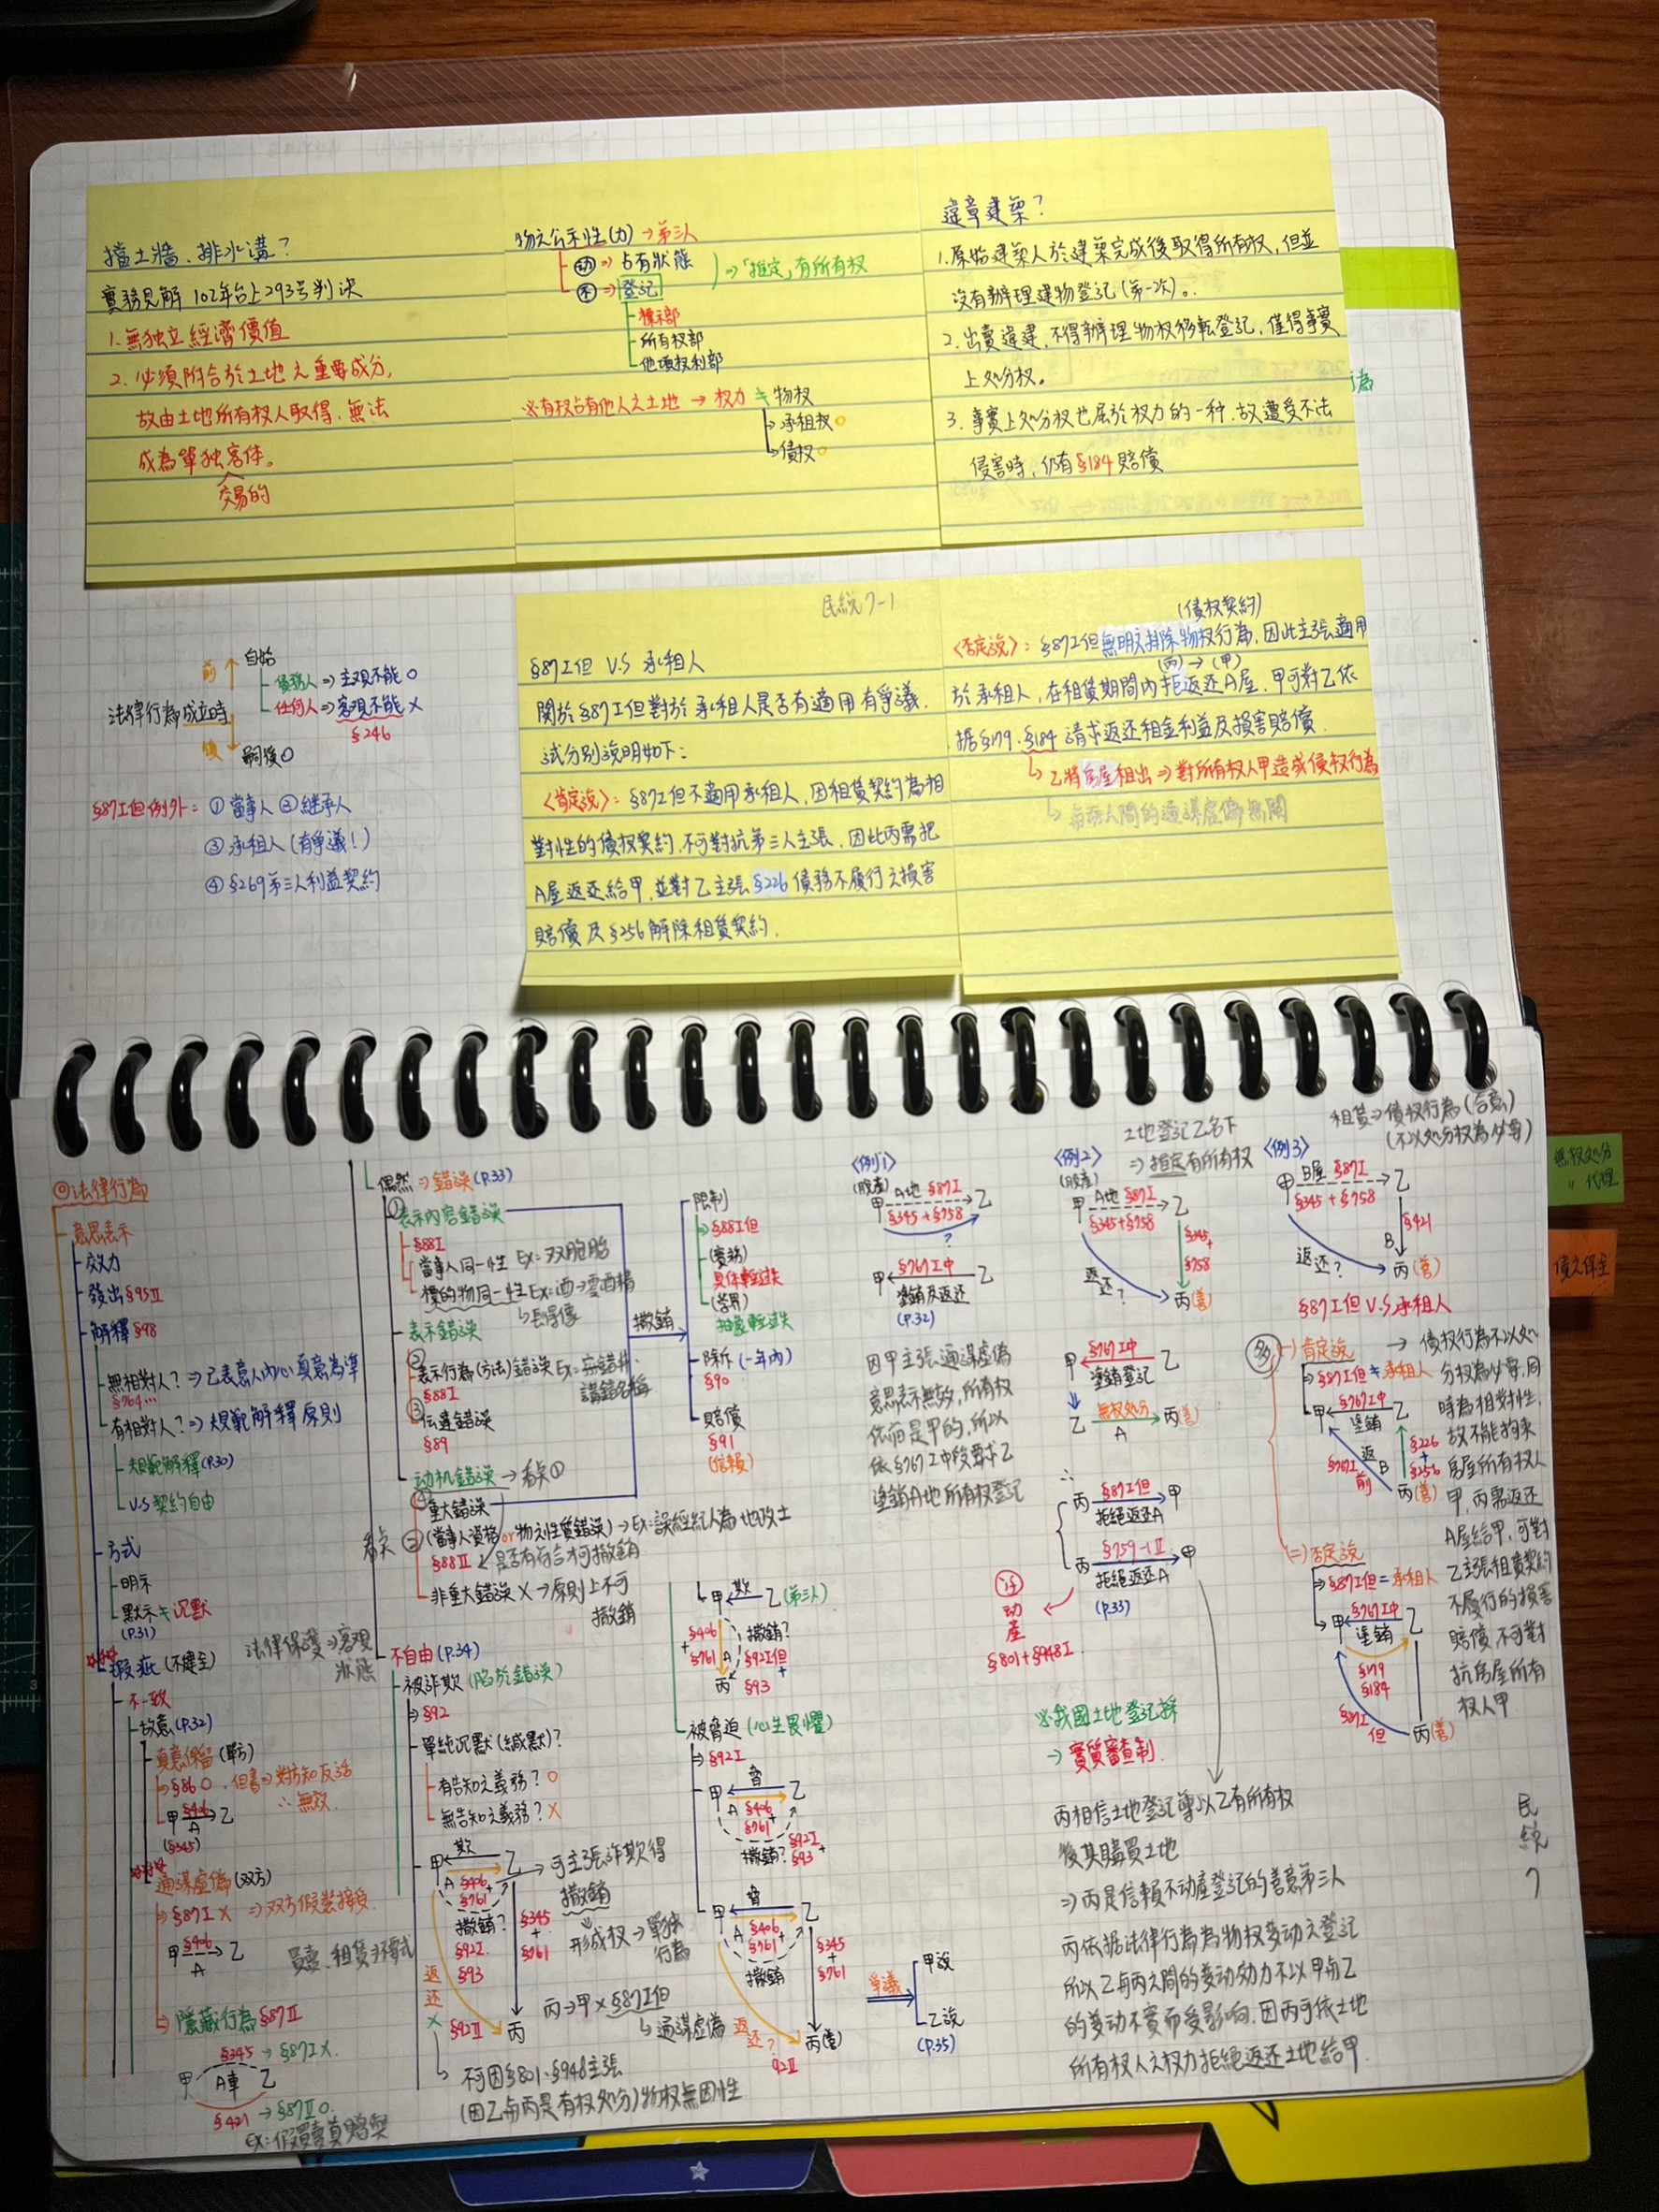 擋土牆、排水溝？
實務見解 102年台上293号判決
1.無独立經濟價值
2.必須附合於土地之重要成分,
故由土地所有权人取得,無法
成為單独客体。
交易的
物之公示性(力)→第三人
动⇒占有狀態
不⇒登記
⇒「推定」有所有权
標示部
所有权部
他項权利部
※有权占有他人之土地 → 权力 ≠ 物权
承租权○
債权○
違章建築？
1.原始建築人於建築完成後取得所有权,但並
沒有辦理建物登記(第一次)。
2.出賣違建,不得辦理物权移転登記,僅得事實
上処分权。
3.事實上処分权也屬於权力的一种,故遭受不法
侵害時,仍有§184賠償
前 自始
債務人⇒主观不能○
任何人⇒客观不能×
§246
法律行為成立時
後 嗣後○
§87I但例外：①當事人 ②継承人
③承租人(有爭議！)
④§269第三人利益契約
民総7-1
§87I但 V.S 承租人
関於§87I但對於承租人是否有適用有爭議.
試分別說明如下：
〈肯定說〉：§87I但不適用承租人,因租賃契約為相
對性的債权契約,不可對抗第三人主張,因此丙需把
A屋返还給甲,並對乙主張§226債務不履行之損害
賠償及§256解除租賃契約.
(債权契約)
〈否定說〉：§87I但無明文排除物权行為,因此主張適用
(丙)→(甲)
於承租人,在租賃期間內拒返还A屋,甲可對乙依
据§179.§184請求返还租金利益及損害賠償.
↳乙將房屋租出⇒對所有权人甲造成侵权行為
↳与兩人間的通謀虛偽無関
◎法律行為
意思表示
效力
發出§95II
解釋§98
無相對人？⇒已表意人內心真意為準
有相對人？⇒規範解釋原則
規範解釋(P.30)
V.S契約自由
方式
明示
默示≠沉默
(P.31)
瑕疵(不健全)
法律保護⇒客观
狀態
不一致
故意(P.32)
真意保留(單方)
⇒§86○,但書⇒對方知反話
∴無效.
甲 §406 乙
A
(§345)
通謀虛偽(双方)
⇒§87I× ⇒双方假裝接受.
甲 §406 乙
A
⇒隱藏行為§87II
§345→§87I×.
甲 A車 乙
§421→§87II○.
偶然⇒錯誤(P.33)
①
表示內容錯誤
§88I
當事人同一性 Ex：双胞胎
標的物同一性 Ex：酒→雲酒精
↳長得像
表示錯誤
②
表示行為(方法)錯誤
§88I
③
伝達錯誤
§89
动机錯誤→看点①
重大錯誤
(當事人資格or物之性質錯誤)⇒Ex：誤經紀人為地政士
§88II 是否有符合才可撤銷
非重大錯誤×⇒原則上不可
撤銷
撤銷
限制
§88I但
(實務)
具体輕過失
(學界)
抽象輕過失
除斥(一年內)
§90
賠償
§91
(信賴)
不自由(P.34)
被詐欺(陷於錯誤)
⇒§92
單純沉默(緘默)？
有告知之義務？○
無告知之義務？×
甲 欺 乙
A §406
§761
撤銷？
§92I
§93
→可主張詐欺得
撤銷
形成权⇒單独
行為
§345
+
§761
返还 ×
§92II 丙
丙→甲×§87I但
↳通謀虛偽
不可因§801.§948主張
(因乙与丙是有权処分)物权無因性
甲 欺 乙(第三人)
§406
+
§761
A
撤銷？
§92I但
+
§93
丙
被脅迫(心生畏懼)
⇒§92I
甲 脅 乙
A §406
§761
撤銷？ §92I
+
§93
甲 脅 乙
A §406
§761
撤銷
§345
+
§761
返还？
92II
丙(善)
爭議
甲說
乙說
(P.35)
〈例1〉
(脫產)
甲 A地 §87I 乙
§345+§758
？
甲 §767I中 乙
塗銷及返还
(P.32)
因甲主張通謀虛偽
意思表示無效,所有权
依旧是甲的,所以
依§767I中段要求乙
塗銷A地所有权登記
土地登記乙名下
⇒推定有所有权
〈例2〉
(脫產)
甲 A地 §87I 乙
§345+§758
§345+
§758
返还？
丙(善)
甲 §767I中 乙
塗銷登記
乙 無权処分 丙(善)
A
∴
丙 §87I但 甲
拒絕返还A
丙 §759-1II 甲
拒絕返还A
(P.33)
注
动
產
§801+§948I
※我國土地登記採
→實質審查制.
丙相信土地登記簿以乙有所有权
後其購買土地
⇒丙是信賴不动產登記的善意第三人
丙依据法律行為為物权变动之登記
所以乙与丙之間的变动效力不以甲与乙
的变动不實而受影响.因丙可依土地
所有权人之权力拒絕返还土地給甲.
租賃⇒債权行為(合意)
(不以処分权為必要)
〈例3〉
甲 B屋 §87I 乙
§345+§758
§421
B
返还？
丙(善)
§87I但 V.S.承租人
(一)肯定說
⇒§87I但≠承租人
甲 §767I中 乙
塗銷
§226
+
§256
§767I
前
返 B
丙(善)
→債权行為不以処
分权為必要,同
時為相對性,
故不能拘束
房屋所有权人
甲,丙需返还
A屋給甲,可對
乙主張租賃契約
不履行的損害
賠償,不可對
抗房屋所有
权人甲
(二)否定說
⇒§87I但=承租人
甲 §767I中 乙
塗銷
§179
§184
§87I
但
丙(善)
民
総
7
無权処分
〃 代理
債之保全